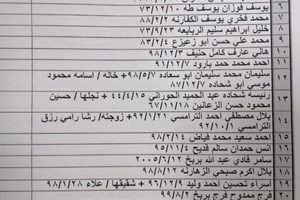 ٦ يوسف فوزان يوسف طه ٧٣/١٢/١٠
٧ محمد فخري يوسف الكفارنه ٨٨/٢/٢
٨ خليل ابراهيم سليم الربايعه ٨٣/١٢/٣
٩ محمد علي حسن ابو زعيزع ٨٣/٢/٤
١٠ هاني عارف كامل حنيف ٩٨/١٢/٣
١١ احمد محمد حمد بارود ٩١/١١/٢
١٢ سليمان محمد سليمان ابو سعاده ٩٨/٥/٧+ خاله / اسامه محمود
موسى ابو شحاده ٨٧/١٢/٧
١٣ رئيسة شحاده عبد الحميد الحوراني ٤٤/٤/١٥ + نجلها / حسين
محمود حسن الزعانين ٦٧/١١/١٨
١٤ بلال مصطفي احمد الترامسي ٩٢/١/٢١+ زوجته/ رشا رامي رزق
الترامسي ٩٢/١٠/١
١٥ احمد سعيد محمد فياض ٩٨/٢/١٤
١٦ انس حمدان سالم قديح ٩٥/١١/٤
١٧ سامر فادي عبد الله بريخ ٢٠٠٥/٦/١٢
١٨ بلال اكرم صبحي الزهارنه ٩٨/٨/٢
١٩ اسراء تحسين احمد وليد ٩٦/١٢/٩ + شقيقها / علاء ٩٨/١/٢٨
٢٠ فرج ممدوح فرج بريخ ٩٩/٨/٢